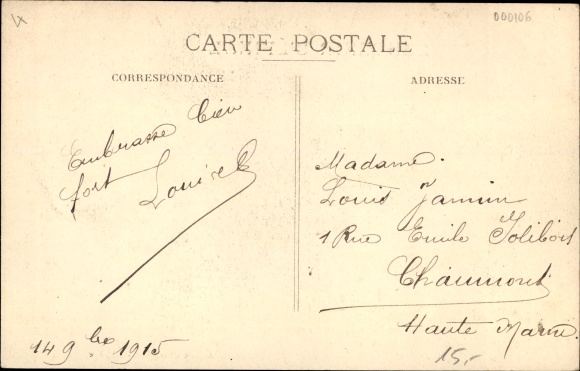 4
000106
CARTE POSTALE
CORRESPONDANCE
ADRESSE
Embrasse bien
fort
Madame
Louis Jamin
1 Rue Emile Jolibois
Chaumont
Haute Marne
14 9bre 1915
15,-